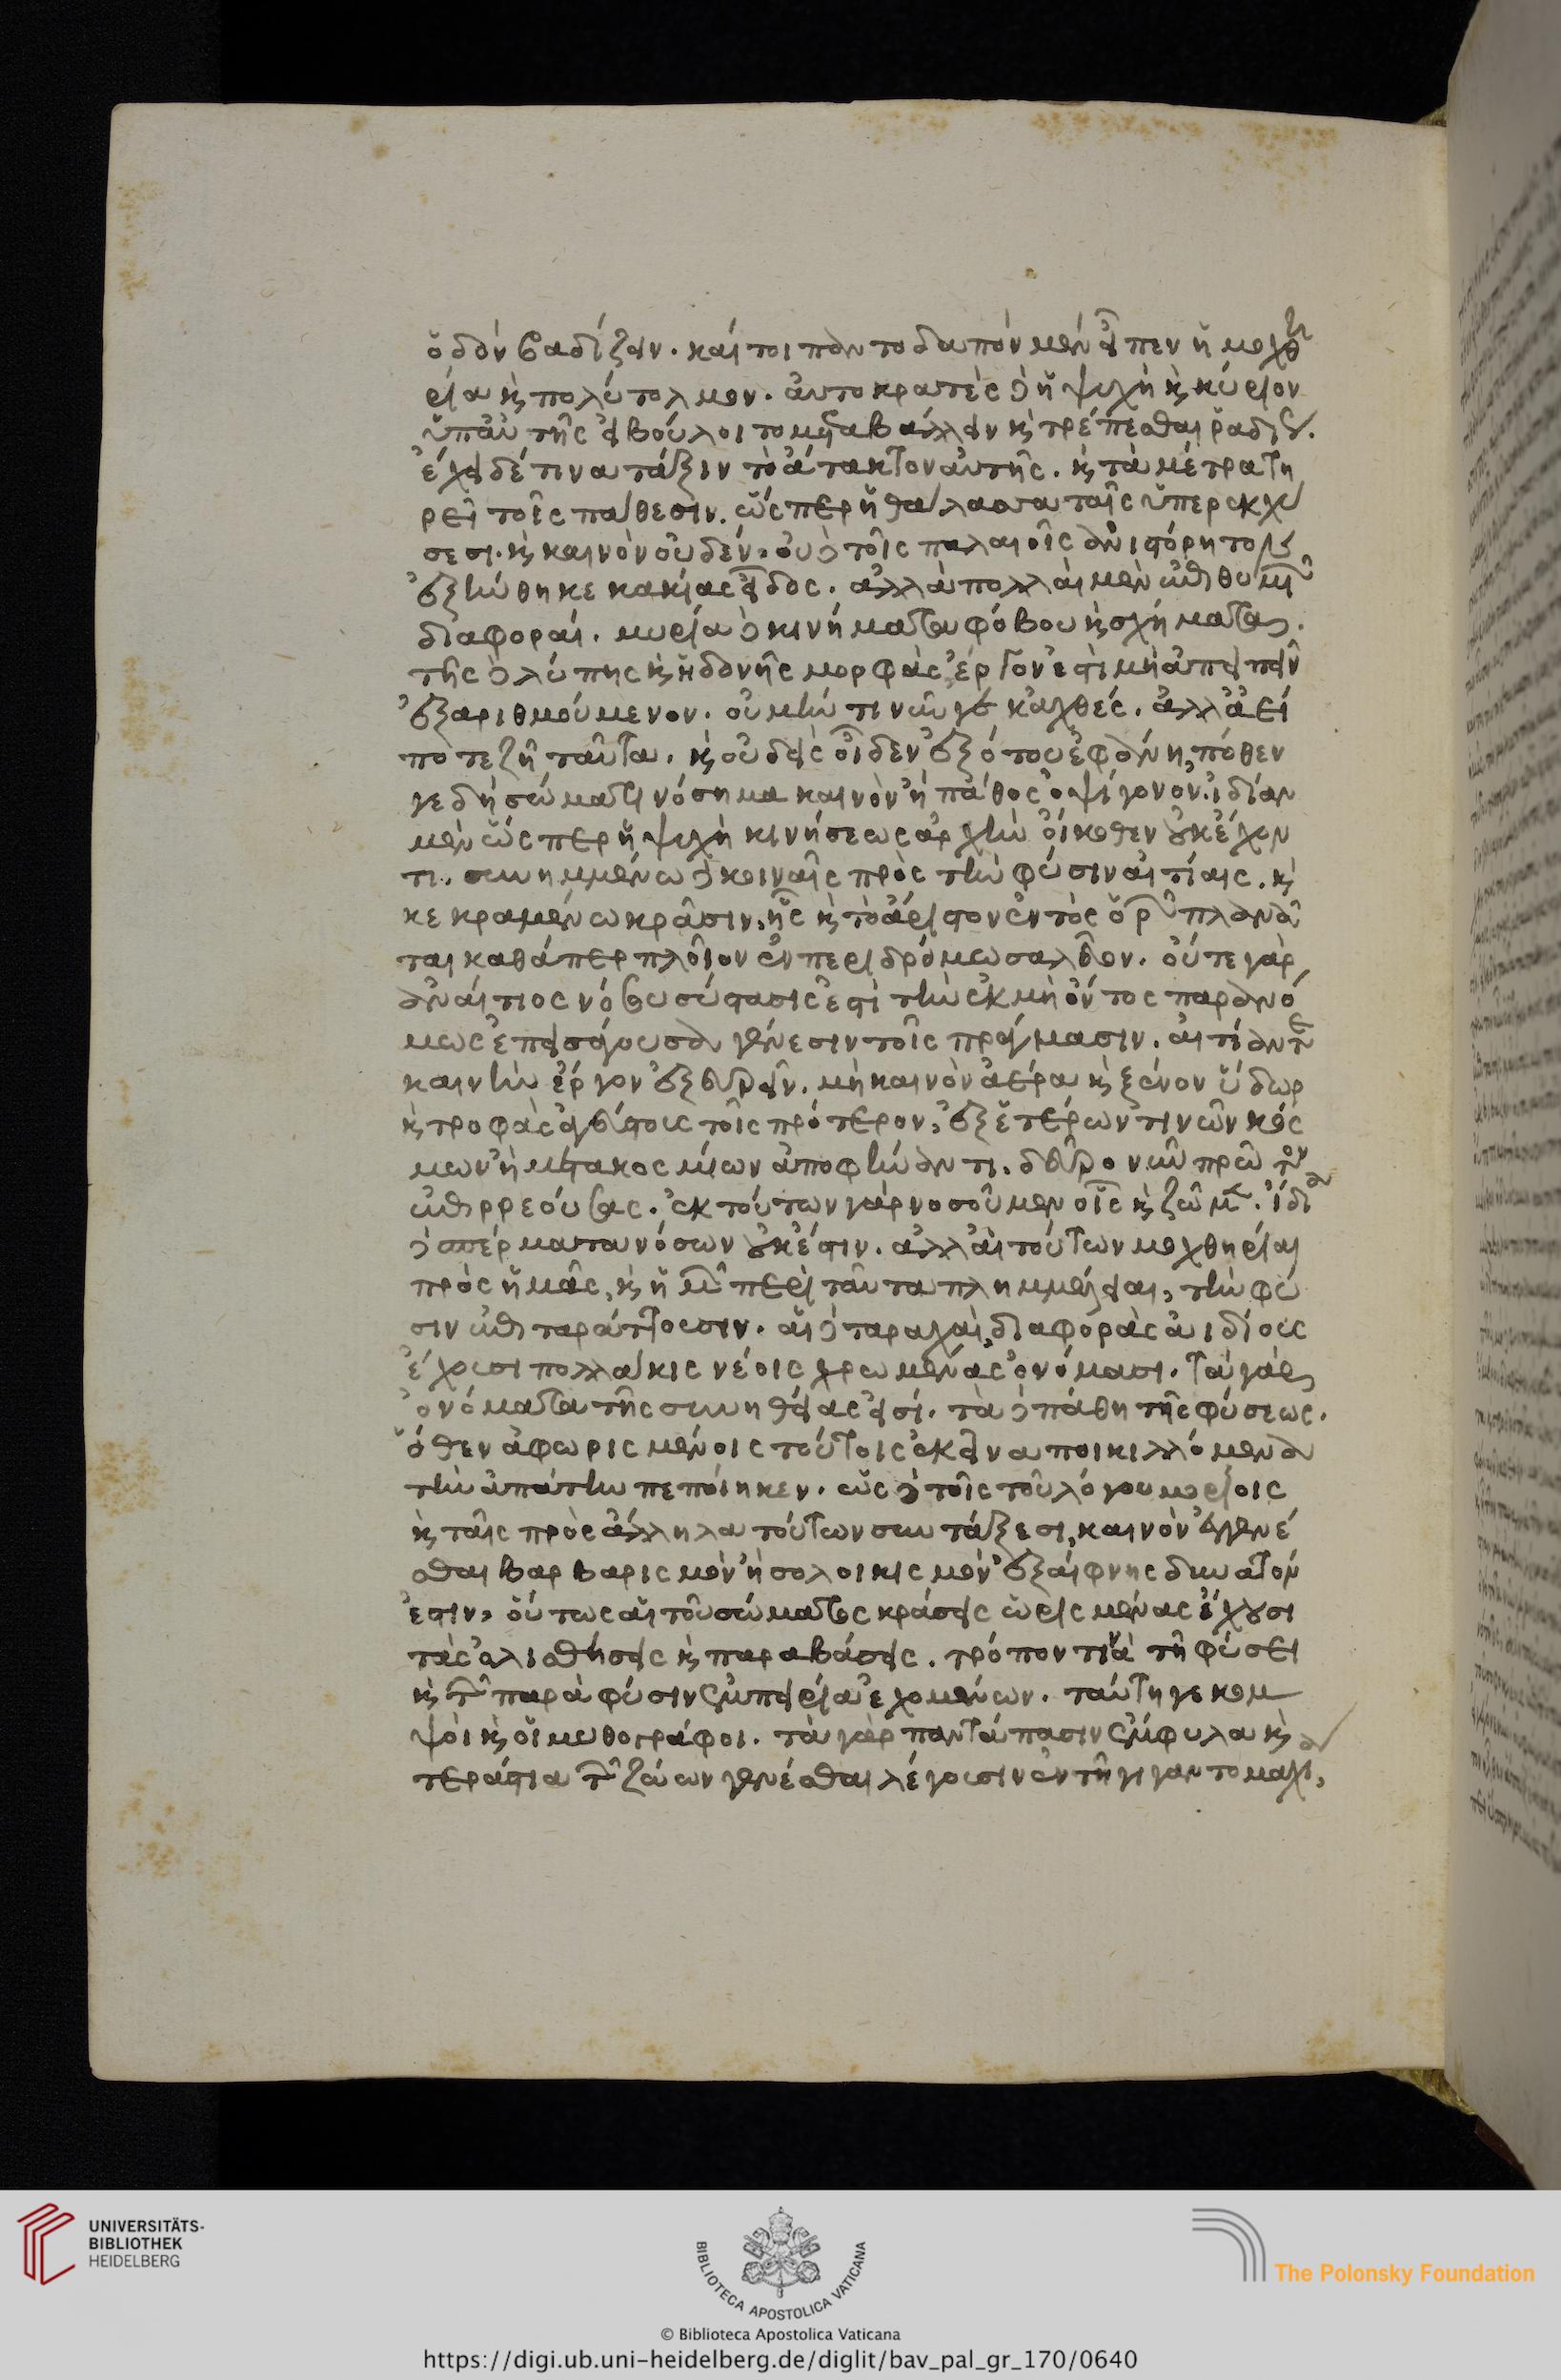 ὁδὸν βαδίζειν. καίτοι παντοδαπὸν μὲν εἶπεν ἡ μοχθη
ρία καὶ πολύτολμον. αὐτοκρατὲς δὲ ἡ ψυχὴ καὶ κύριον
ὑπ' αὐτῆς εἰ βούλοιτο μεταβάλλειν καὶ τρέπεσθαι ῥαδίως.
ἔχει δέ τινα τάξιν τὸ ἄτακτον αὐτῆς. καὶ τὰ μέτρα τη
ρεῖ τοῖς πάθεσιν. ὥσπερ ἡ θάλασσα ταῖς ὑπερεκχύ
σεσι. καὶ καινὸν οὐδέν. οὐδὲ τοῖς παλαιοῖς ἀνιστόρητον
ἐξήνθηκε κακίας εἶδος. ἀλλὰ πολλαὶ μὲν ἐπιθυμιῶν
διαφοραί. μυρία δὲ κινήματα φόβου καὶ σχήματα.
τῆς δὲ λύπης καὶ ἡδονῆς μορφὰς ἔργον ἐστὶ μὴ ἀπειπεῖν
ἐξαριθμούμενον. οὐ μήν τι νῦν γε κἀχθές. ἀλλ' ἀεί
ποτε ζῆ ταῦτα. καὶ οὐδεὶς οἶδεν ἐξ ὅτου ἐφάνη, πόθεν
γε δὴ σώματι νόσημα καινὸν ἢ πάθος ὀψίγονον. ἰδίαν
μὲν ὥσπερ ἡ ψυχὴ κινήσεως ἀρχὴν οἴκοθεν οὐκ ἔχον
τι. συνημμένω δὲ κοιναῖς πρὸς τὴν φύσιν αἰτίαις. καὶ
κεκραμένω κρᾶσιν, ἧς καὶ τὸ ἀόριστον ἐντὸς ὅρων πλανᾶ
ται καθάπερ πλοῖον ἐν περιδρόμω σαλεῦον. οὔτε γὰρ
ἀναίτιος νόσου σύστασίς ἐστι τὴν ἐκ μὴ ὄντος παρανό
μως ἐπεισάγουσα γένεσιν τοῖς πράγμασιν. αἰτίαν τε
καινὴν ἔργον ἐξευρεῖν. μὴ καινὸν ἀέρα καὶ ξένον ὕδωρ
καὶ τροφὰς ἀγεύστους τοῖς πρότερον, ἐξ ἑτέρων τινῶν κόσ
μων ἢ μετακοσμίων ἀποφήναντι. δεῦρο νῦν πρῶτον
ἐπιρρεούσας. ἐκ τούτων γὰρ νοσοῦμεν οἷς καὶ ζῶμεν. ἴδια
δὲ σπέρματα νόσων οὐκ ἔστιν. ἀλλ' αἱ τούτων μοχθηρίαι
πρὸς ἡμᾶς, καὶ ἡμῶν περὶ ταῦτα πλημμέλειαι, τὴν φύ
σιν ἐπιταράττουσιν. αἱ δὲ ταραχαὶ διαφορὰς ἀιδίους
ἔχουσι πολλάκις νέοις χρωμένας ὀνόμασι. τὰ γὰρ
ὀνόματα τῆς συνηθείας εἰσί. τὰ δὲ πάθη τῆς φύσεως.
ὅθεν ἀφωρισμένοις τούτοις ἐκεῖνα ποικιλλόμενα
τὴν ἀπάτην πεποίηκεν. ὡς δὲ τοῖς τοῦ λόγου μορίοις
καὶ ταῖς πρὸς ἄλληλα τούτων συντάξεσι, καινὸν ἐγγενέ
σθαι βαρβαρισμὸν ἢ σολοικισμὸν ἐξαίφνης δυνατόν
ἐστιν, οὕτως αἱ τοῦ σώματος κράσεις ὡρισμένας ἔχουσι
τὰς ὀλισθήσεις καὶ παραβάσεις. τρόπον τινὰ τῆ φύσει
καὶ τῶν παρὰ φύσιν ἐμπεριεχομένων. ταύτη γε κομ
ψοὶ καὶ οἱ μυθογράφοι. τὰ γὰρ παντάπασιν ἔκφυλα καὶ
τεράστια τῶν ζώων γενέσθαι λέγουσιν ἐν τῆ γιγαντομαχία,
UNIVERSITÄTS-
BIBLIOTHEK
HEIDELBERG
BIBLIOTECA APOSTOLICA VATICANA
The Polonsky Foundation
© Biblioteca Apostolica Vaticana
https://digi.ub.uni-heidelberg.de/diglit/bav_pal_gr_170/0640